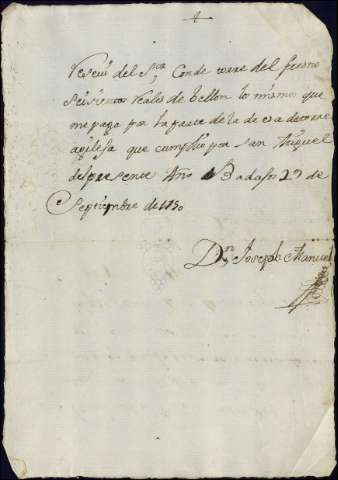 Resevi del Sor Conde torre del fresno
seisientos reales de bellon lo mismos que
me paga por la parte de la de sa de torre
aqilesa que cumplio por san Miguel
del presente Año Badajos 29 de
Septiembre de 1750
Dn Joseph Manuel